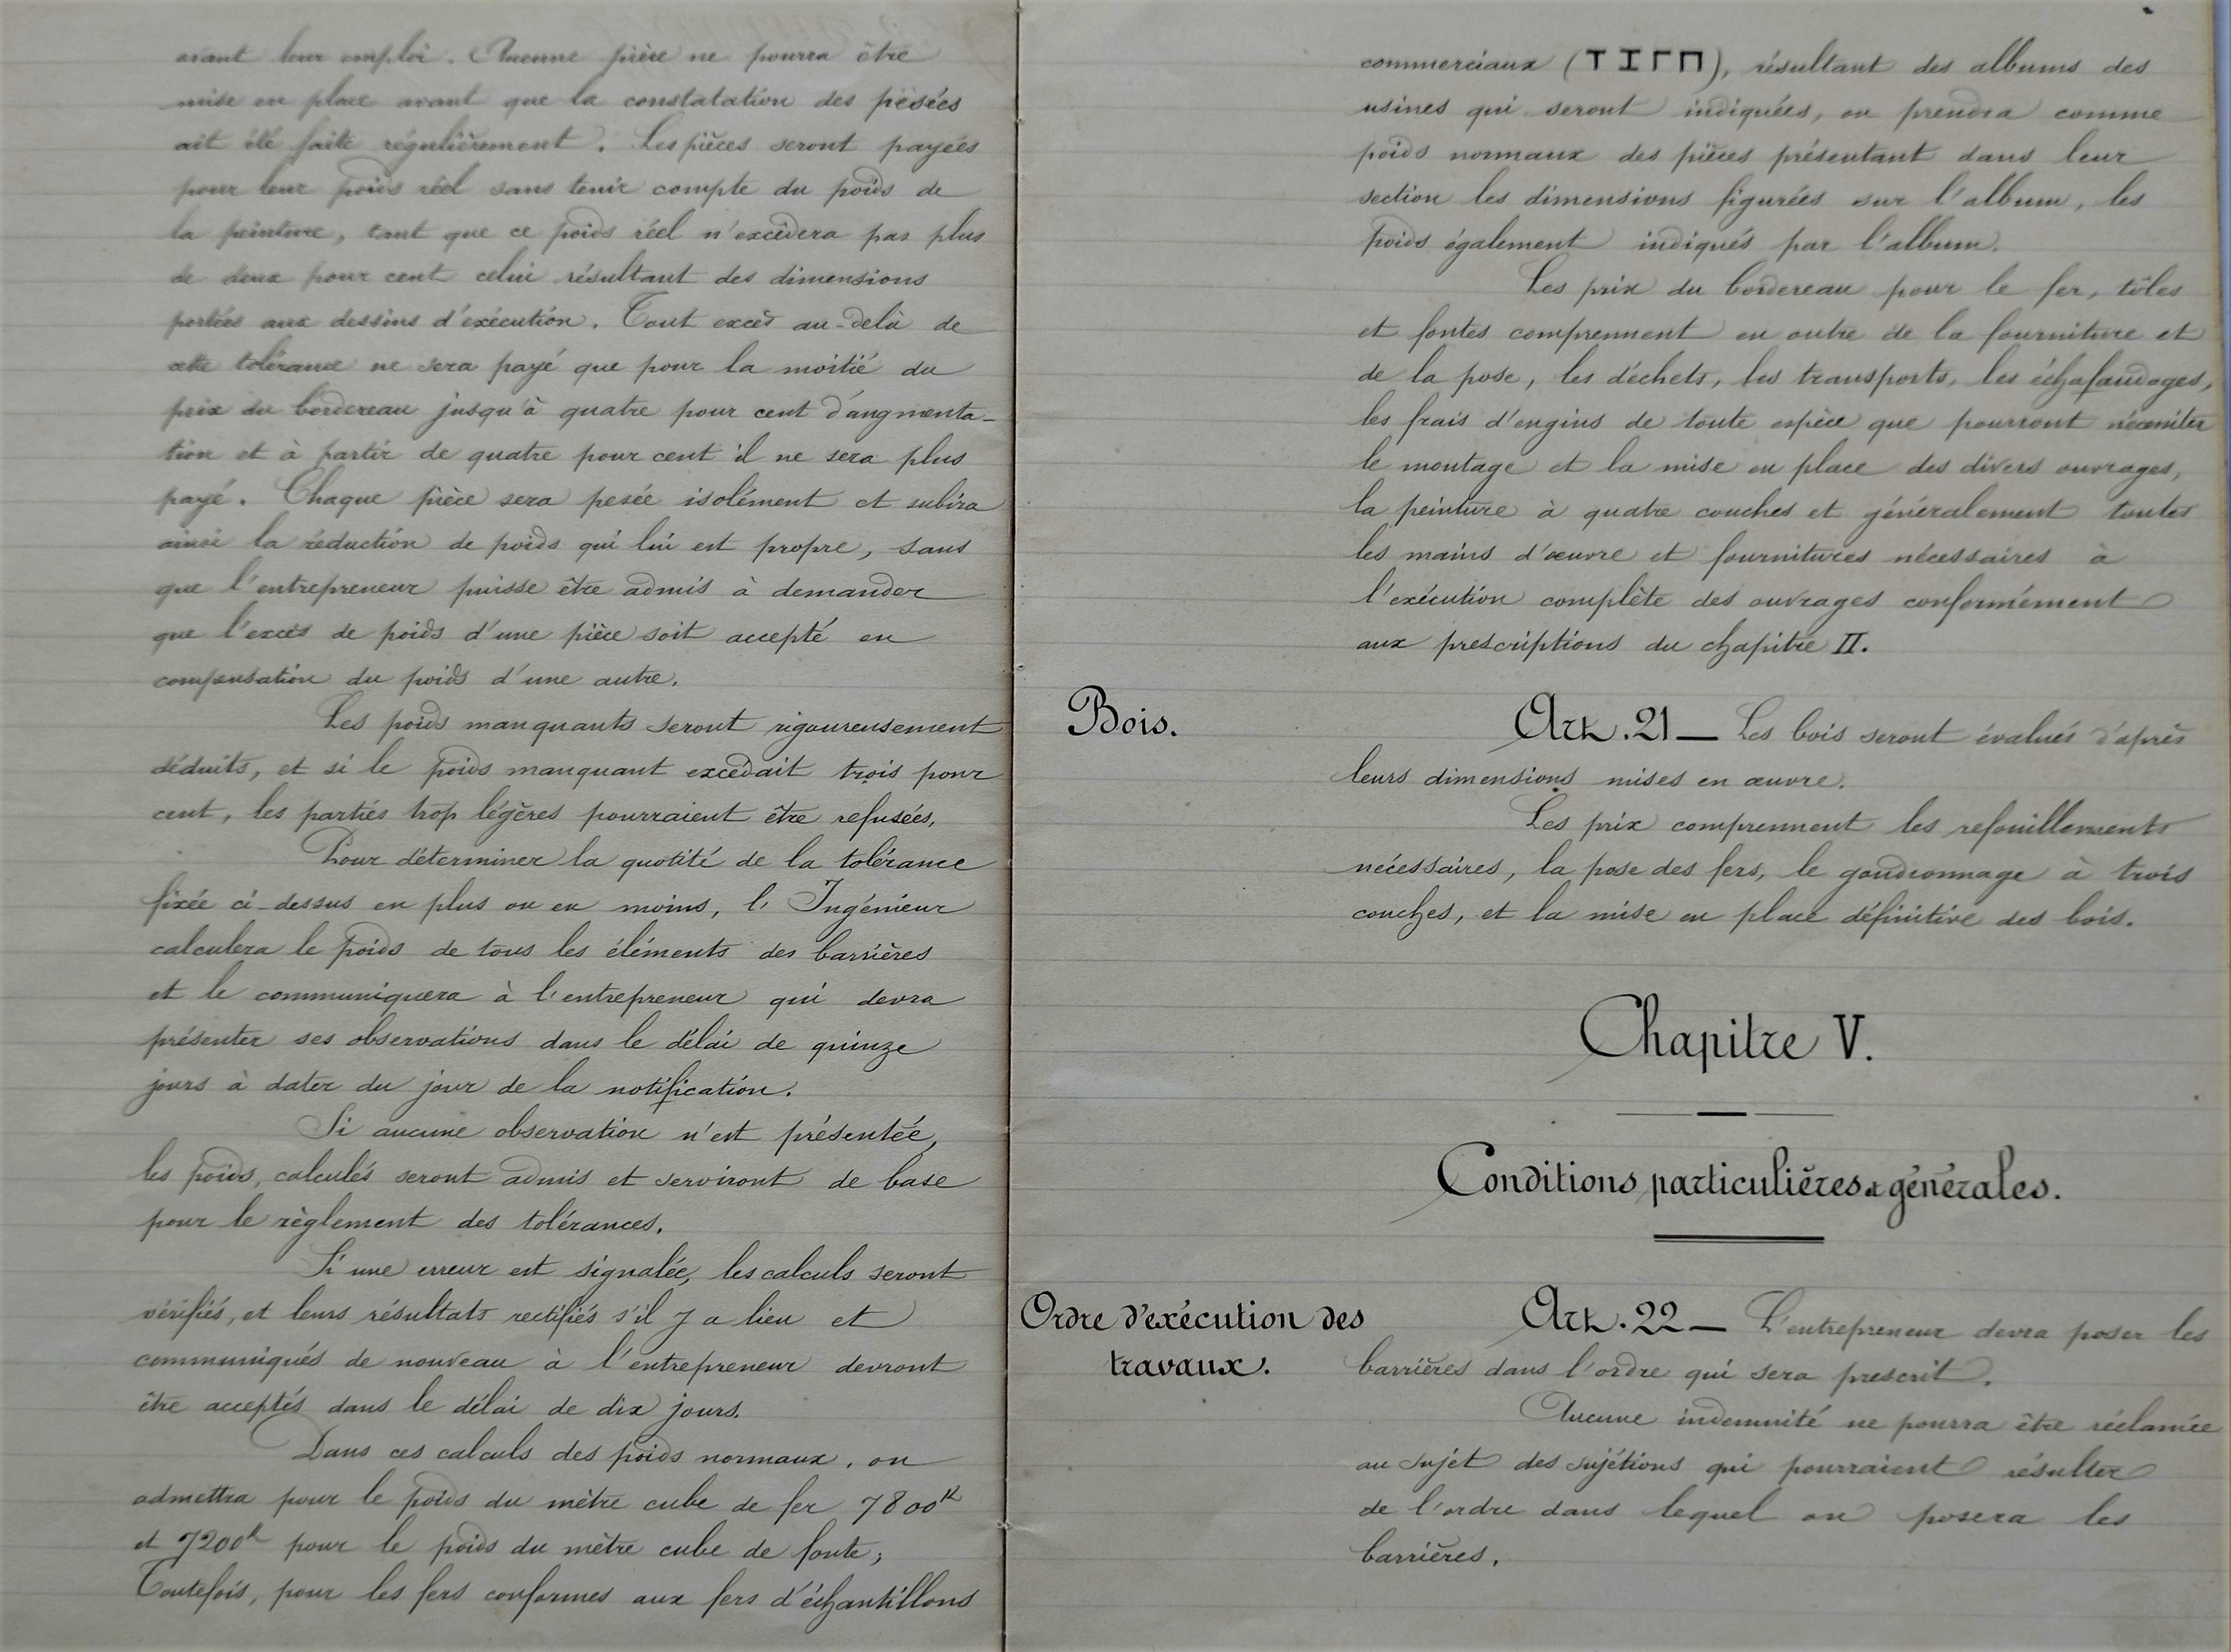 avant leur emploi. Aucune pièce ne pourra être
mise en place avant que la constatation des pesées
ait été faite régulièrement. Les pièces seront payées
pour leur poids réel sans tenir compte du poids de
la peinture, tant que ce poids réel n'excèdera pas plus
de deux pour cent celui résultant des dimensions
portées aux dessins d'exécution. Tout excès au-delà de
cette tolérance ne sera payé que pour la moitié du
prix du bordereau jusqu'à quatre pour cent d'augmenta-
tion et à partir de quatre pour cent il ne sera plus
payé. Chaque pièce sera pesée isolément et subira
ainsi la réduction de poids qui lui est propre, sans
que l'entrepreneur puisse être admis à demander
que l'excès de poids d'une pièce soit accepté en
compensation du poids d'une autre.
Les poids manquants seront rigoureusement
déduits, et si le poids manquant excédait trois pour
cent, les parties trop légères pourraient être refusées.
Pour déterminer la quotité de la tolérance
fixée ci-dessus en plus ou en moins, l'Ingénieur
calculera le poids de tous les éléments des barrières
et le communiquera à l'entrepreneur qui devra
présenter ses observations dans le délai de quinze
jours à dater du jour de la notification.
Si aucune observation n'est présentée,
les poids, calculés seront admis et serviront de base
pour le règlement des tolérances.
Si une erreur est signalée, les calculs seront
vérifiés, et leurs résultats rectifiés s'il y a lieu et
communiqués de nouveau à l'entrepreneur devront
être acceptés dans le délai de dix jours.
Dans ces calculs des poids normaux, on
admettra pour le poids du mètre cube de fer 7800k
et 7200k pour le poids du mètre cube de fonte;
Toutefois, pour les fers conformes aux fers d'échantillons
commerciaux (T I Γ Π), résultant des albums des
usines qui seront indiquées, on prendra comme
poids normaux des pièces présentant dans leur
section les dimensions figurées sur l'album, les
poids également indiqués par l'album.
Les prix du bordereau pour le fer, tôles
et fontes comprennent en outre de la fourniture et
de la pose, les déchets, les transports, les échafaudages,
les frais d'engins de toute espèce que pourront nécessiter
le montage et la mise en place des divers ouvrages,
la peinture à quatre couches et généralement toutes
les mains d'œuvre et fournitures nécessaires à
l'exécution complète des ouvrages conformément
aux prescriptions du chapitre II.
Bois.
Art. 21 — Les bois seront évalués d'après
leurs dimensions mises en œuvre.
Les prix comprennent les refouillements
nécessaires, la pose des fers, le goudronnage à trois
couches, et la mise en place définitive des bois.
Chapitre V.
Conditions particulières et générales.
Ordre d'exécution des
travaux.
Art. 22 — L'entrepreneur devra poser les
barrières dans l'ordre qui sera prescrit.
Aucune indemnité ne pourra être réclamée
au sujet des sujétions qui pourraient résulter
de l'ordre dans lequel on posera les
barrières.